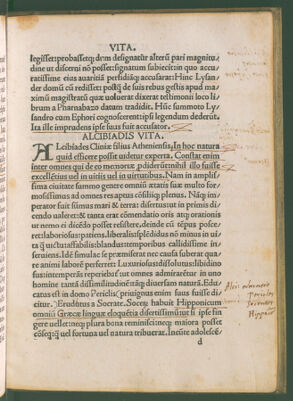 VITA.
legisset: probassetq; dum designatur alterũ pari magnitu,
dine ut discerni nõ posset: signatum subiecit: in quo accu,
ratissime eius auaritiã perfidiãq; accusarat: Hinc Lysan
der domũ cũ redisset: postq̃ de suis rebus gestis apud ma
ximũ magistratũ quæ uoluerat dixerat: testimonii loco li
brum a Pharnabazo datum tradidit. Hũc summoto Ly
sandro cum Ephori cognoscerent: ipsi legendum dederut.
Ita ille imprudens ipse suus fuit accusator.
ALCIBIADIS VITA.
ALcibiades Cliniæ filius Atheniensis. In hoc natura
quid efficere possit uidetur experta. Constat enim
inter omnes qui de eo memoriæ
excellẽtius uel in uitiis uel in uirtutibus. Nam in amplis
sima ciuitate summo genere omniũ ætatis suæ multo for
mosissimus ad omnes res aptus cõsiliiq; plenus. Nãq; im
perator fuit sũmus mari & terra: disertus ut in primis di
cendo ualeret: & tanta erat cõmendatio oris atq; orationis
ut nemo ei dicẽdo posset resistere,
laboriosus: patiens, liberalis: splẽdidus nõ minus in ui
ta q̃ uictu: affabilis: blandus: temporibus callidissime in
seruiens. Idẽ simulac se remiserat: nec causa suberat qua
re animi laborẽ perferret: Luxuriosus: dissolutus: libidino
sus: intemperãs reperiebat: ut omnes admirarẽtur in uno
homine tantã dissimilitudinẽ: tãq; diuersam naturã. Edu
catus est in domo Periclis,
citur.) Eruditus a Socrate. Socerũ habuit Hipponicum
omniũ Græcæ linguæ eloquẽtia disertissimũ: ut si ipse fin
gere uellet: neq; plura bona reminisci: neq; maiora posset
cõseq; q̃ uel fortuna uel natura tribuerat. Ineunte adolesc
d
Pericles
Hippon